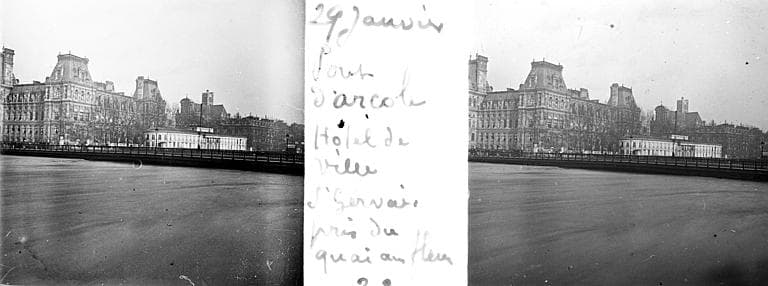 29 Janvier
Pont
d'arcole
Hôtel de
Ville
St Gervais
pris du
quai aux fleurs